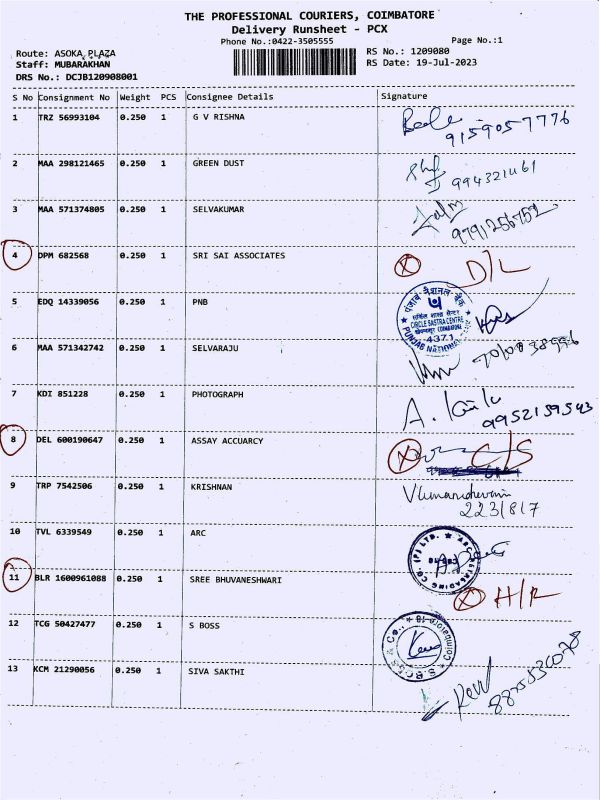 THE PROFESSIONAL COURIERS, COIMBATORE
Delivery Runsheet - PCX
Phone No.:0422-3505555 Page No.:1
Route: ASOKA PLAZA RS No.: 1209080
Staff: MUBARAKHAN RS Date: 19-Jul-2023
DRS No.: DCJB120908001
S No Consignment No Weight PCS Consignee Details Signature
1 TRZ 56993104 0.250 1 G V RISHNA
9159057776
2 MAA 298121465 0.250 1 GREEN DUST
3 MAA 571374805 0.250 1 SELVAKUMAR
9791256752
4 DPM 682568 0.250 1 SRI SAI ASSOCIATES D/L
5 EDQ 14339056 0.250 1 PNB
पंजाब नैशनल बैंक
CIRCLE SASTRA CENTRE
4371
PUNJAB NATIONAL
6 MAA 571342742 0.250 1 SELVARAJU
7 KDI 851228 0.250 1 PHOTOGRAPH
9952159543
8 DEL 600190647 0.250 1 ASSAY ACCUARCY C/S
9 TRP 7542506 0.250 1 KRISHNAN
2231817
10 TVL 6339549 0.250 1 ARC
11 BLR 1600961088 0.250 1 SREE BHUVANESHWARI
H/R
12 TCG 50427477 0.250 1 S BOSS
S.BOSS & Co., Coimbatore-18
13 KCM 21290056 0.250 1 SIVA SAKTHI